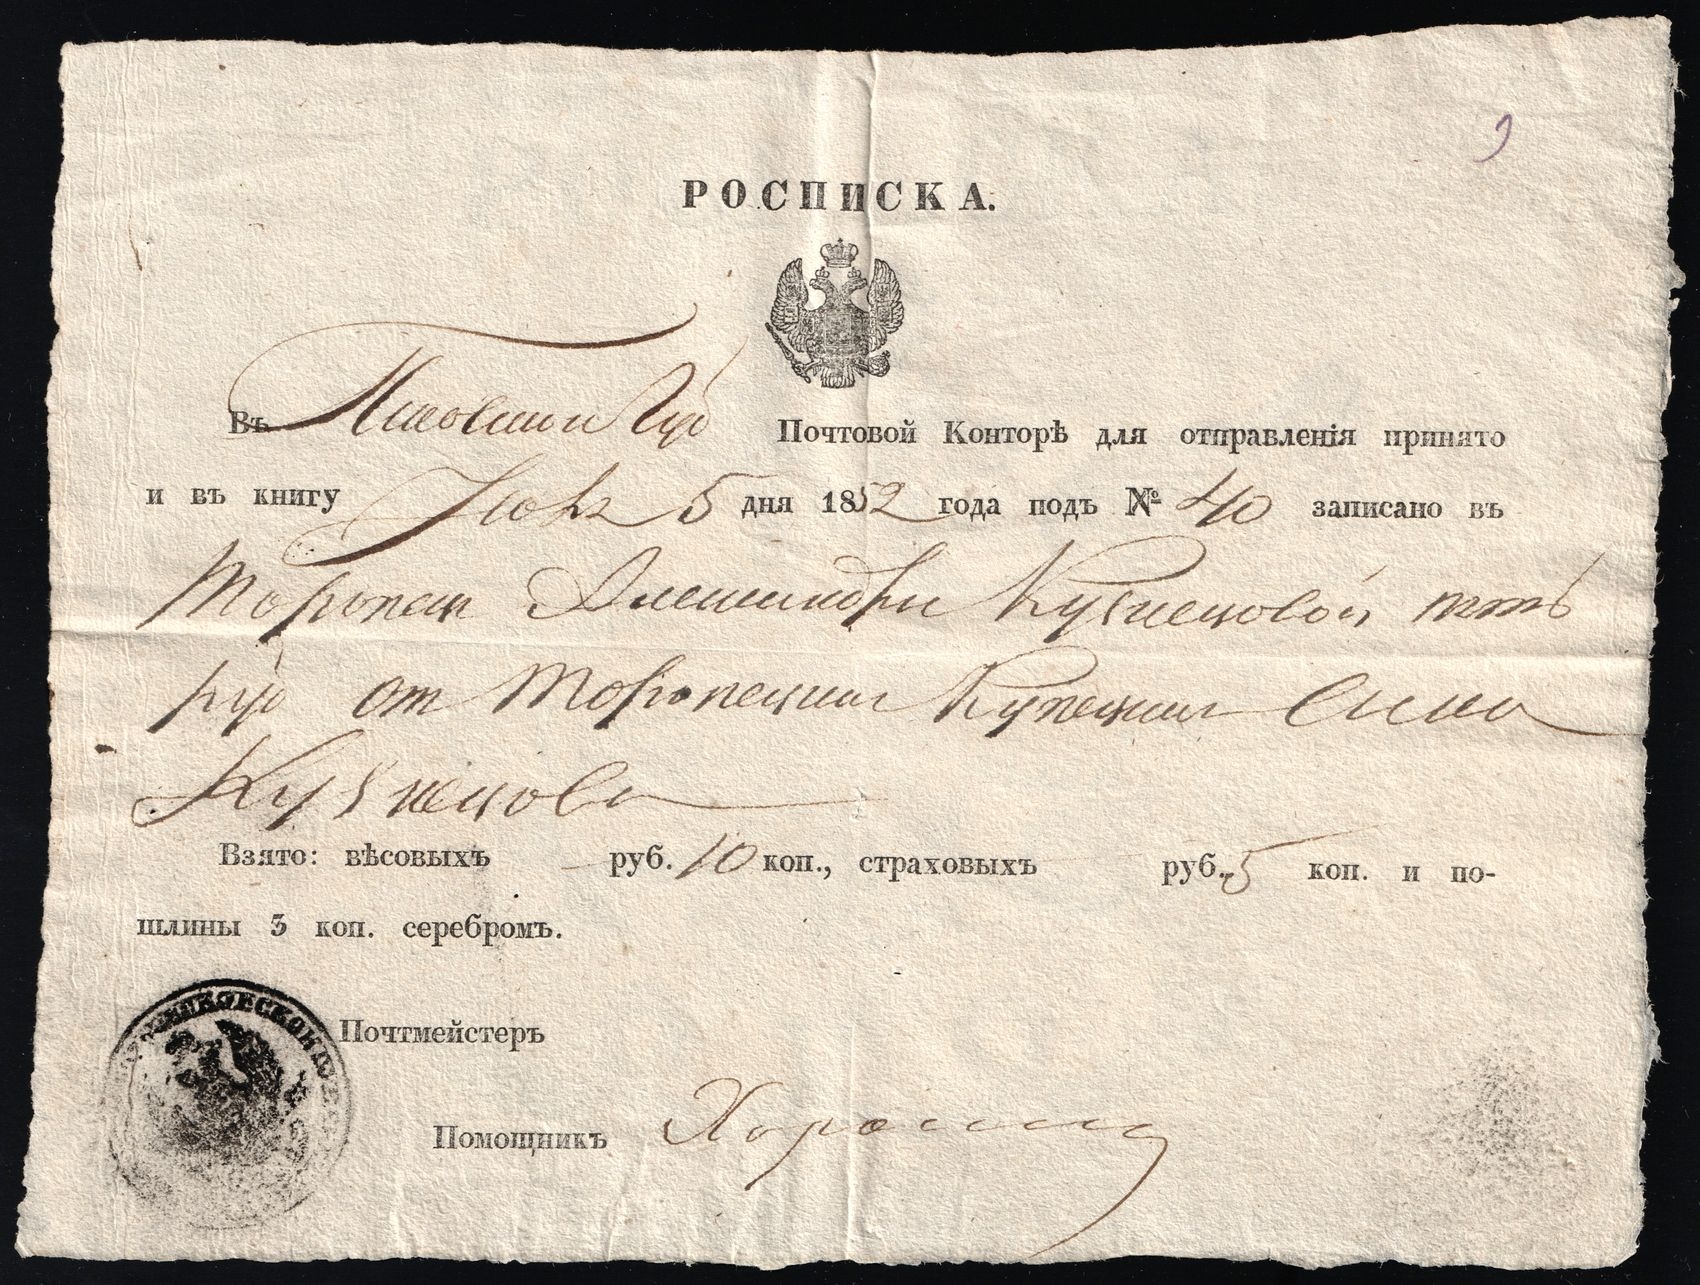 РОСПИСКА.
Въ Псковской Губ Почтовой Конторѣ для отправленія принято
и въ книгу 5 дня 1852 года подъ № 40 записано въ
Торопец Александри Кузнецовой пять
руб от Торопецкаго Купецкаго Сына
Кузнецова
Взято: вѣсовыхъ — руб. 10 коп., страховыхъ руб. 5 коп. и по-
шлины 3 коп. серебромъ.
Почтмейстеръ
Помощникъ